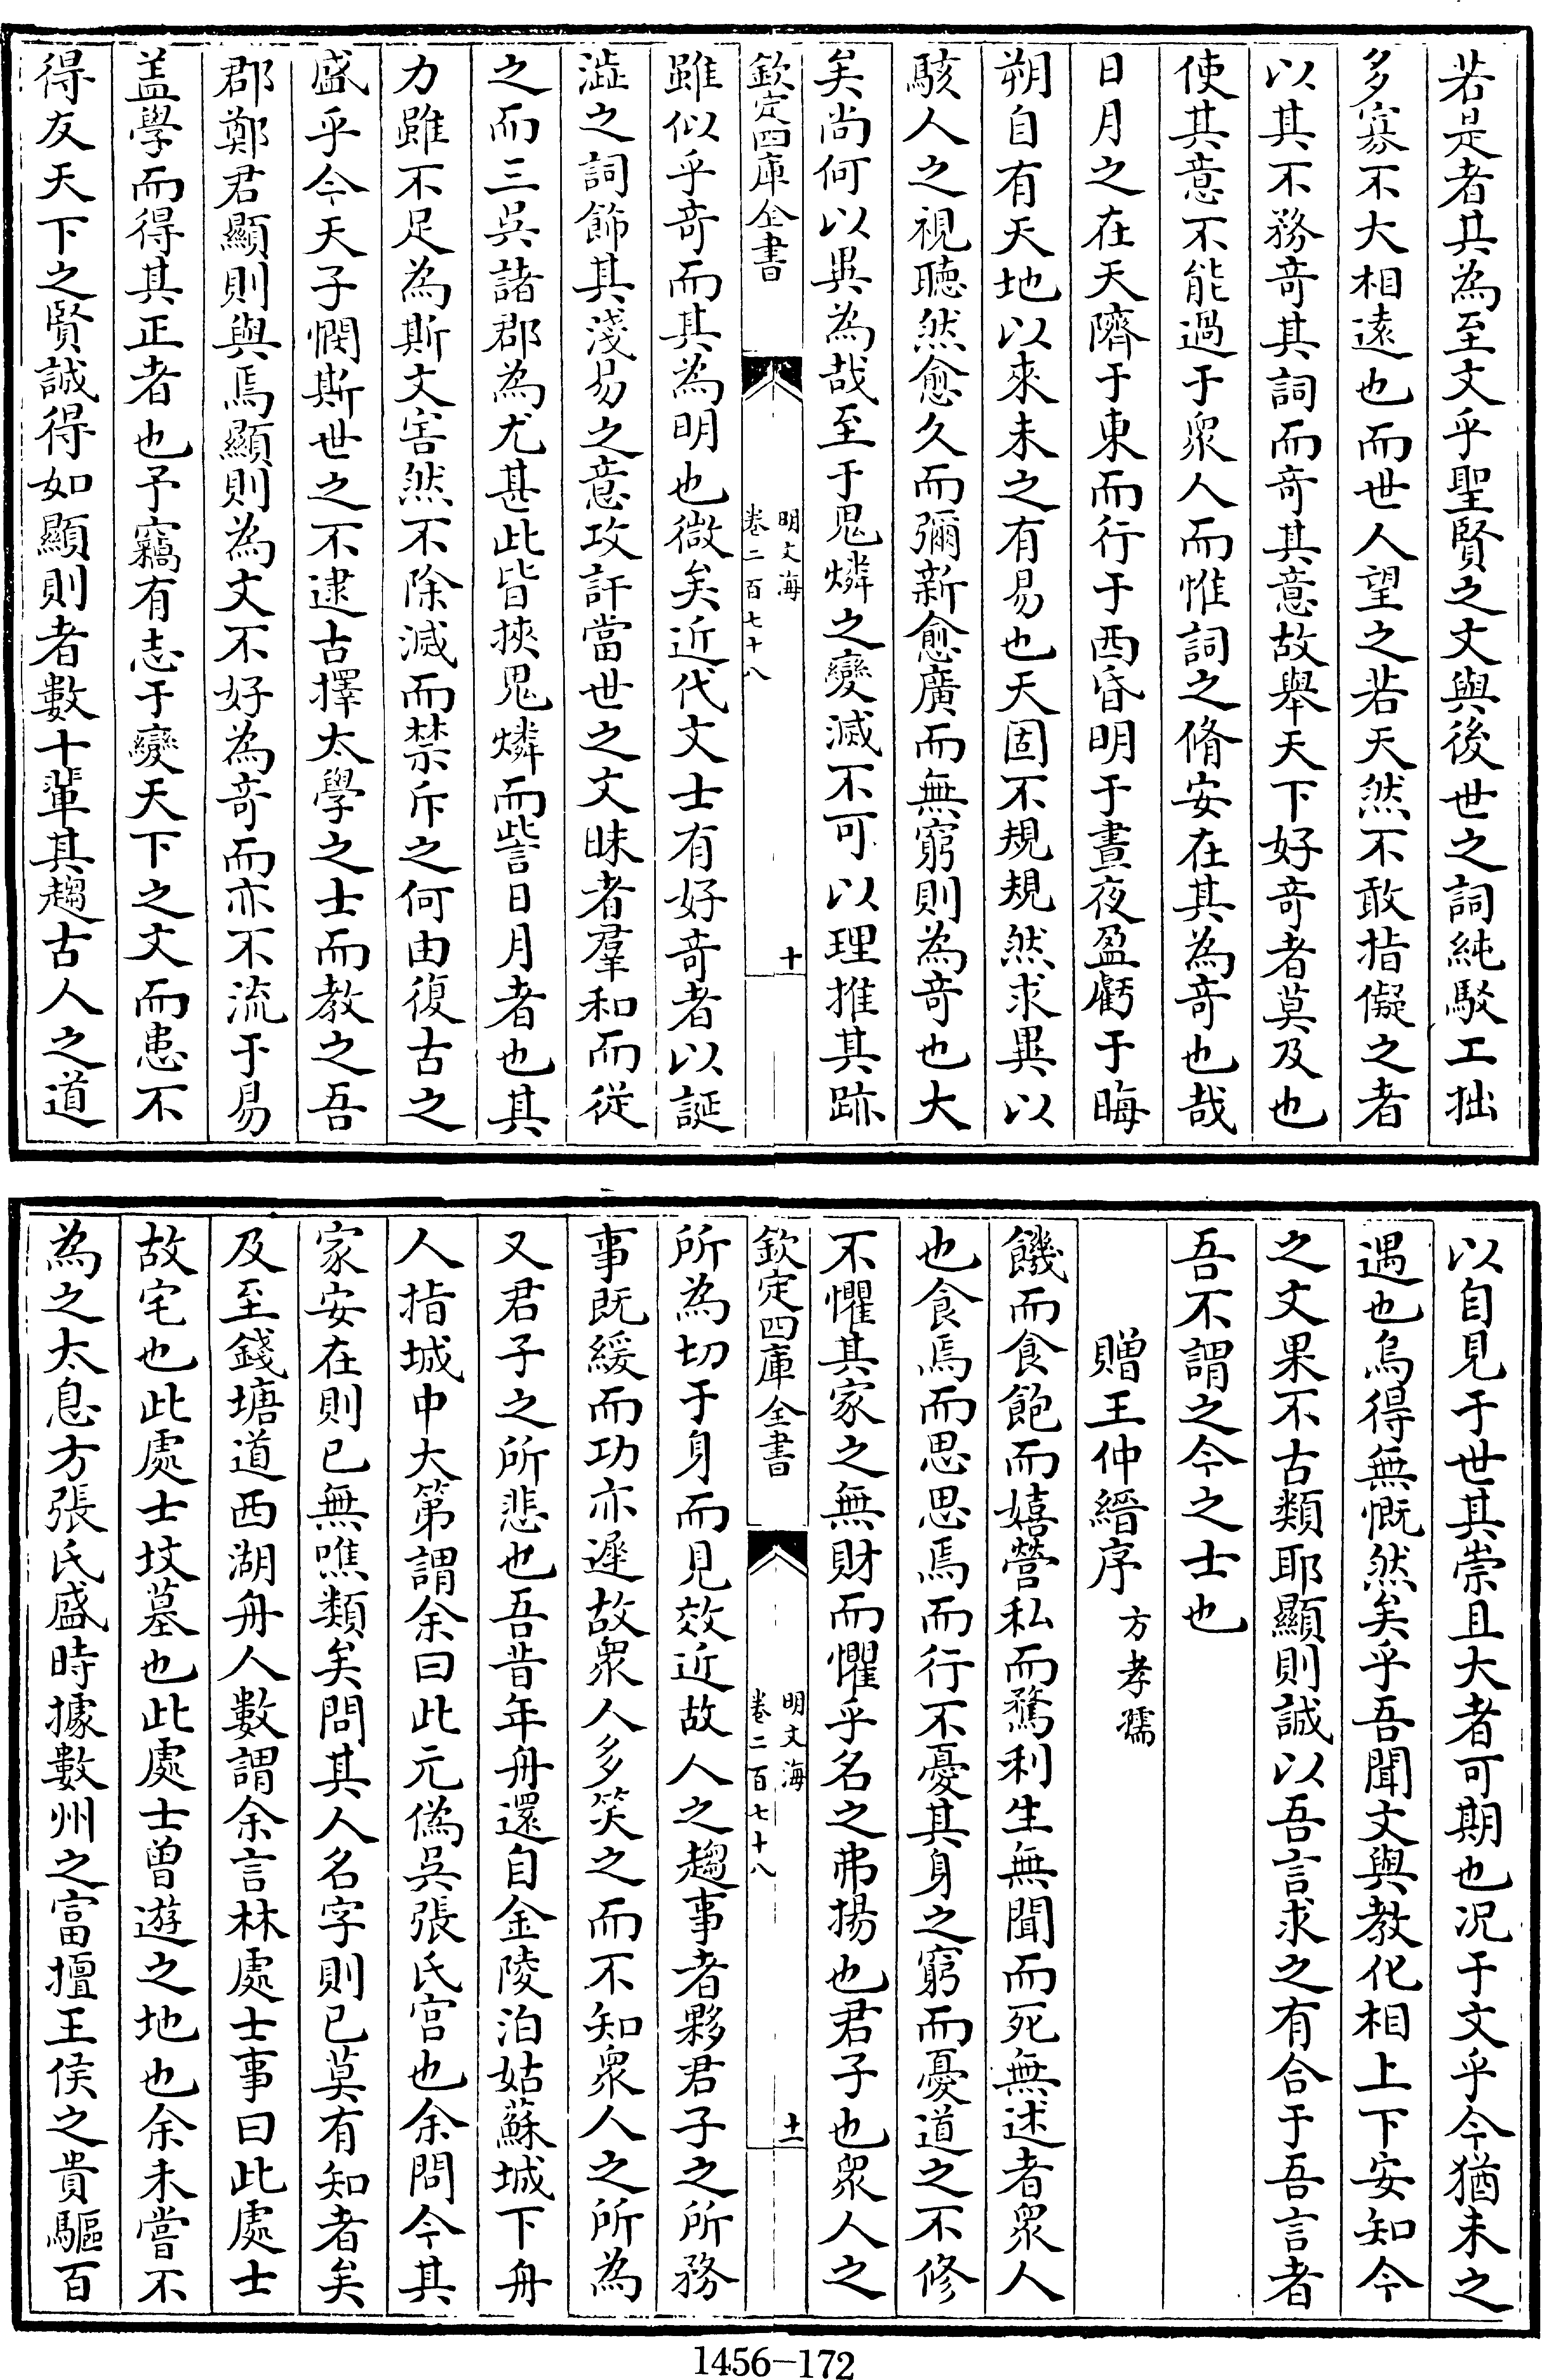 若是者其為至文乎聖賢之文與後世之詞純駁工拙
多寡不大相遠也而世人望之若天然不敢指儗之者
以其不務竒其詞而竒其意故舉天下好竒者莫及也
使其意不能過于衆人而惟詞之脩安在其為竒也哉
日月之在天隮于東而行于西昏明于晝夜盈虧于晦
朔自有天地以來未之有易也天固不規規然求異以
駭人之視聽然愈久而彌新愈廣而無窮則為竒也大
矣尚何以異為哉至于鬼燐之變滅不可以理推其跡
欽定四庫全書
明文海
卷二百七十八
十
雖似乎竒而其為明也微矣近代文士有好竒者以誕
澁之詞飾其淺易之意攻訐當世之文昧者羣和而從
之而三吳諸郡為尤甚此皆挾鬼燐而訾日月者也其
力雖不足為斯文害然不除滅而禁斥之何由復古之
盛乎今天子憫斯世之不逮古擇太學之士而教之吾
郡鄭君顯則與焉顯則為文不好為竒而亦不流于易
盖學而得其正者也予竊有志于變天下之文而患不
得友天下之賢誠得如顯則者數十輩其趨古人之道
以自見于世其崇且大者可期也况于文乎今猶未之
遇也烏得無慨然矣乎吾聞文與教化相上下安知今
之文果不古類耶顯則誠以吾言求之有合于吾言者
吾不謂之今之士也
贈王仲縉序 方孝孺
饑而食飽而嬉營私而騖利生無聞而死無述者衆人
也食焉而思思焉而行不憂其身之窮而憂道之不修
不懼其家之無財而懼乎名之弗揚也君子也衆人之
欽定四庫全書
明文海
卷二百七十八
十一
所為切于身而見效近故人之趨事者夥君子之所務
事既緩而功亦遲故衆人多笑之而不知衆人之所為
又君子之所悲也吾昔年舟還自金陵泊姑蘇城下舟
人指城中大第謂余曰此元偽吳張氏宫也余問今其
家安在則已無噍類矣問其人名字則已莫有知者矣
及至錢塘道西湖舟人數謂余言林處士事曰此處士
故宅也此處士坟墓也此處士曾遊之地也余未嘗不
為之太息方張氏盛時據數州之富擅王侯之貴驅百
1456-172